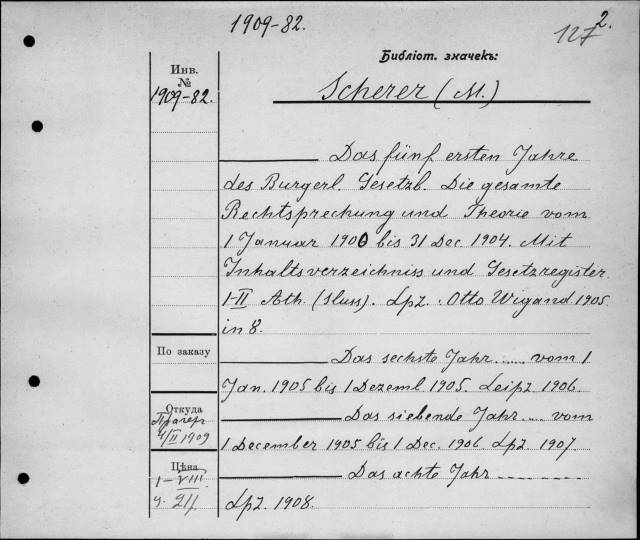 1909-82.
127 2.
Библіот. значекъ:
Инв.
№
1909-82.
Scherer (M.)
Das fünf ersten Jahre
des Burgerl. Gesetzb. Die gesamte
Rechtsprechung und Theorie vom
1 Januar 1900 bis 31 Dec. 1904. Mit
Inhaltsverzeichniss und Gesetzregister
I-II Ath. (sluss). Lpz. Otto Wigand 1905.
in 8.
По заказу
Das sechste Jahr ..... vom 1
Jan. 1905 bis 1 Dezemb. 1905. Leipz. 1906.
Откуда
Прагер
4/II 1909
Das siebende Jahr .... vom
1 December 1905 bis 1 Dec. 1906. Lpz. 1907.
Цѣна
I-VIII
Das achte Jahr - - - - - - - -
Lpz. 1908.